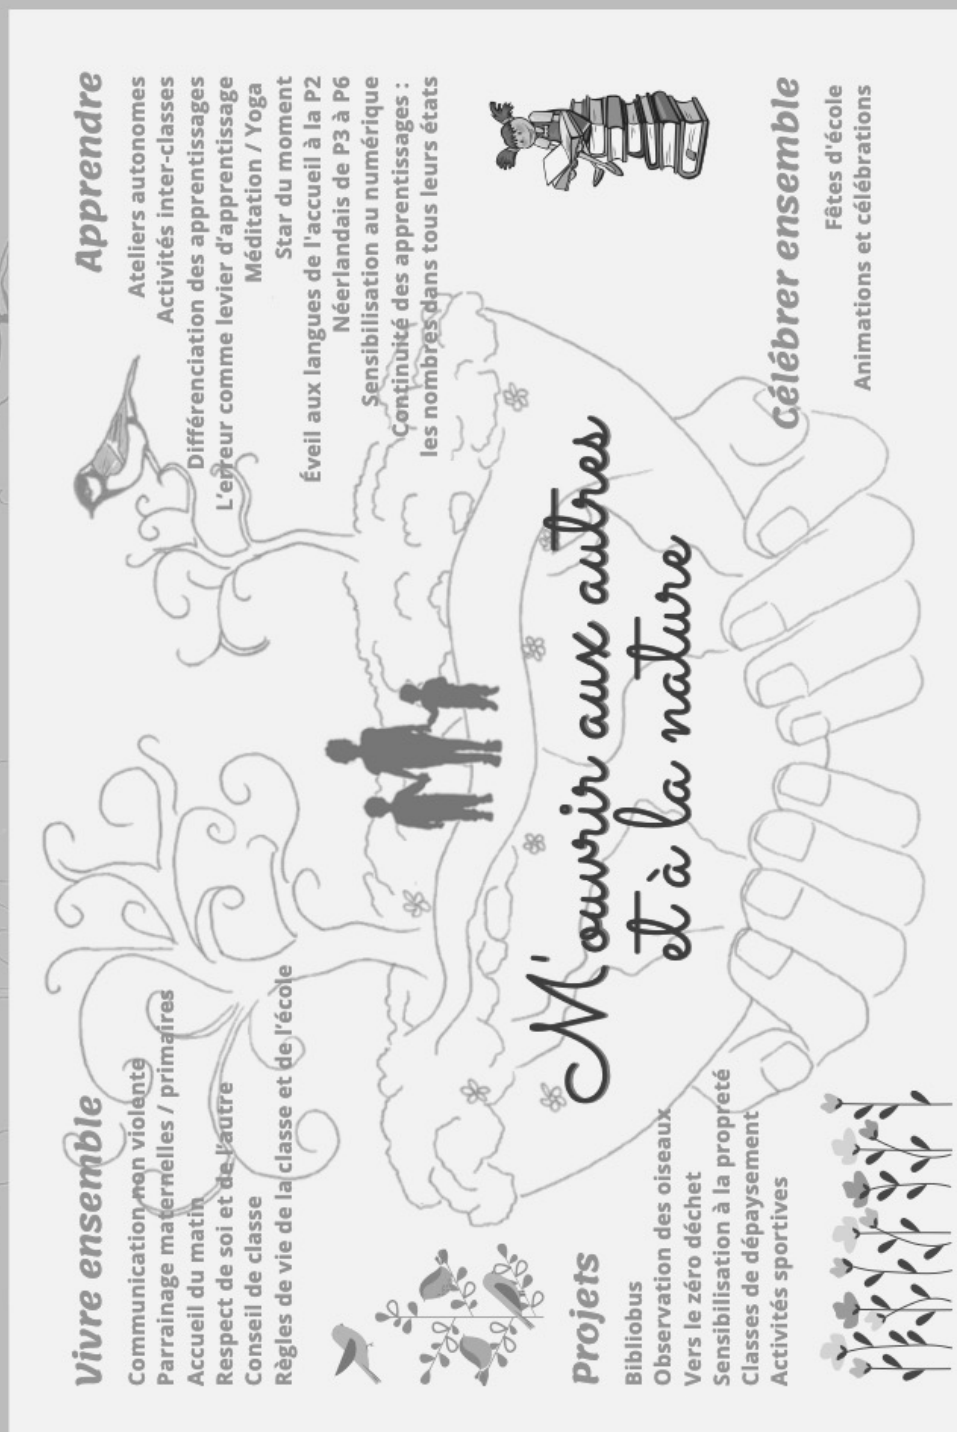 Vivre ensemble
Communication non violente
Parrainage maternelles / primaires
Accueil du matin
Respect de soi et de l'autre
Conseil de classe
Règles de vie de la classe et de l'école
Apprendre
Ateliers autonomes
Activités inter-classes
Différenciation des apprentissages
L'erreur comme levier d'apprentissage
Méditation / Yoga
Star du moment
Éveil aux langues de l'accueil à la P2
Néerlandais de P3 à P6
Sensibilisation au numérique
Continuité des apprentissages :
les nombres dans tous leurs états
M'ouvrir aux autres
et à la nature
Projets
Bibliobus
Observation des oiseaux
Vers le zéro déchet
Sensibilisation à la propreté
Classes de dépaysement
Activités sportives
Célébrer ensemble
Fêtes d'école
Animations et célébrations